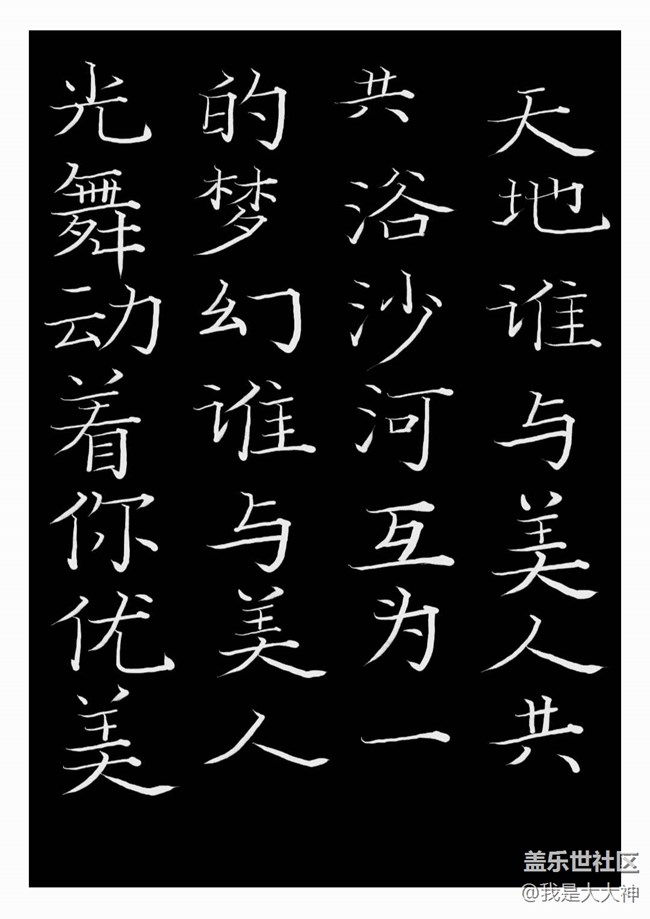 天地谁与美人共
共浴沙河互为一
的梦幻谁与美人
光舞动着你优美
盖乐世社区
@我是大大神